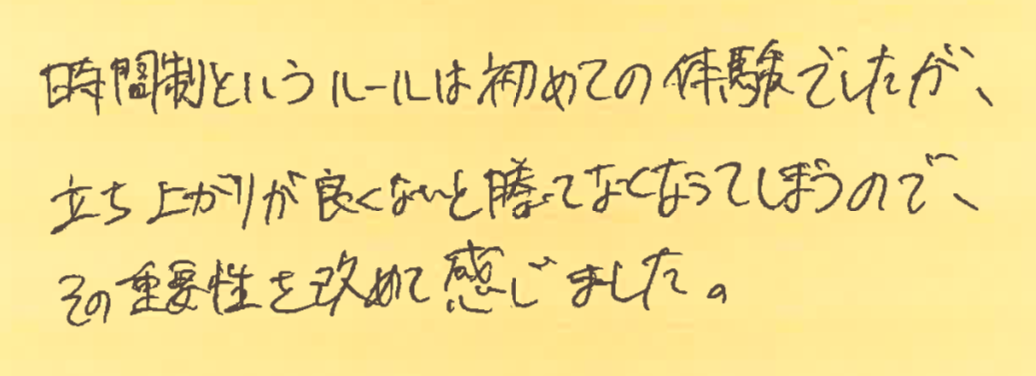 時間制というルールは初めての体験でしたが、
立ち上がりが良くないと勝てなくなってしまうので、
その重要性を改めて感じました。